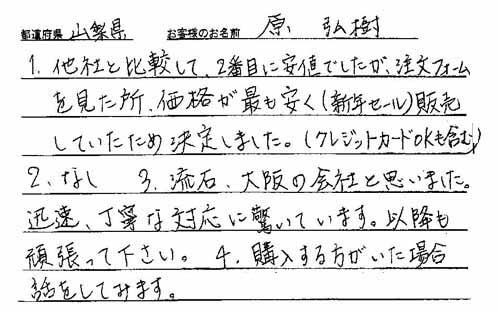 都道府県 山梨県 お客様のお名前 原 弘樹
1. 他社と比較して、2番目に安値でしたが、注文フォーム
を見た所、価格が最も安く(新年セール)販売
していたため決定しました。(クレジットカードOKも含む)
2. なし 3. 流石、大阪の会社と思いました。
迅速、丁寧な対応に驚いています。以降も
頑張って下さい。 4. 購入する方がいた場合
話をしてみます。